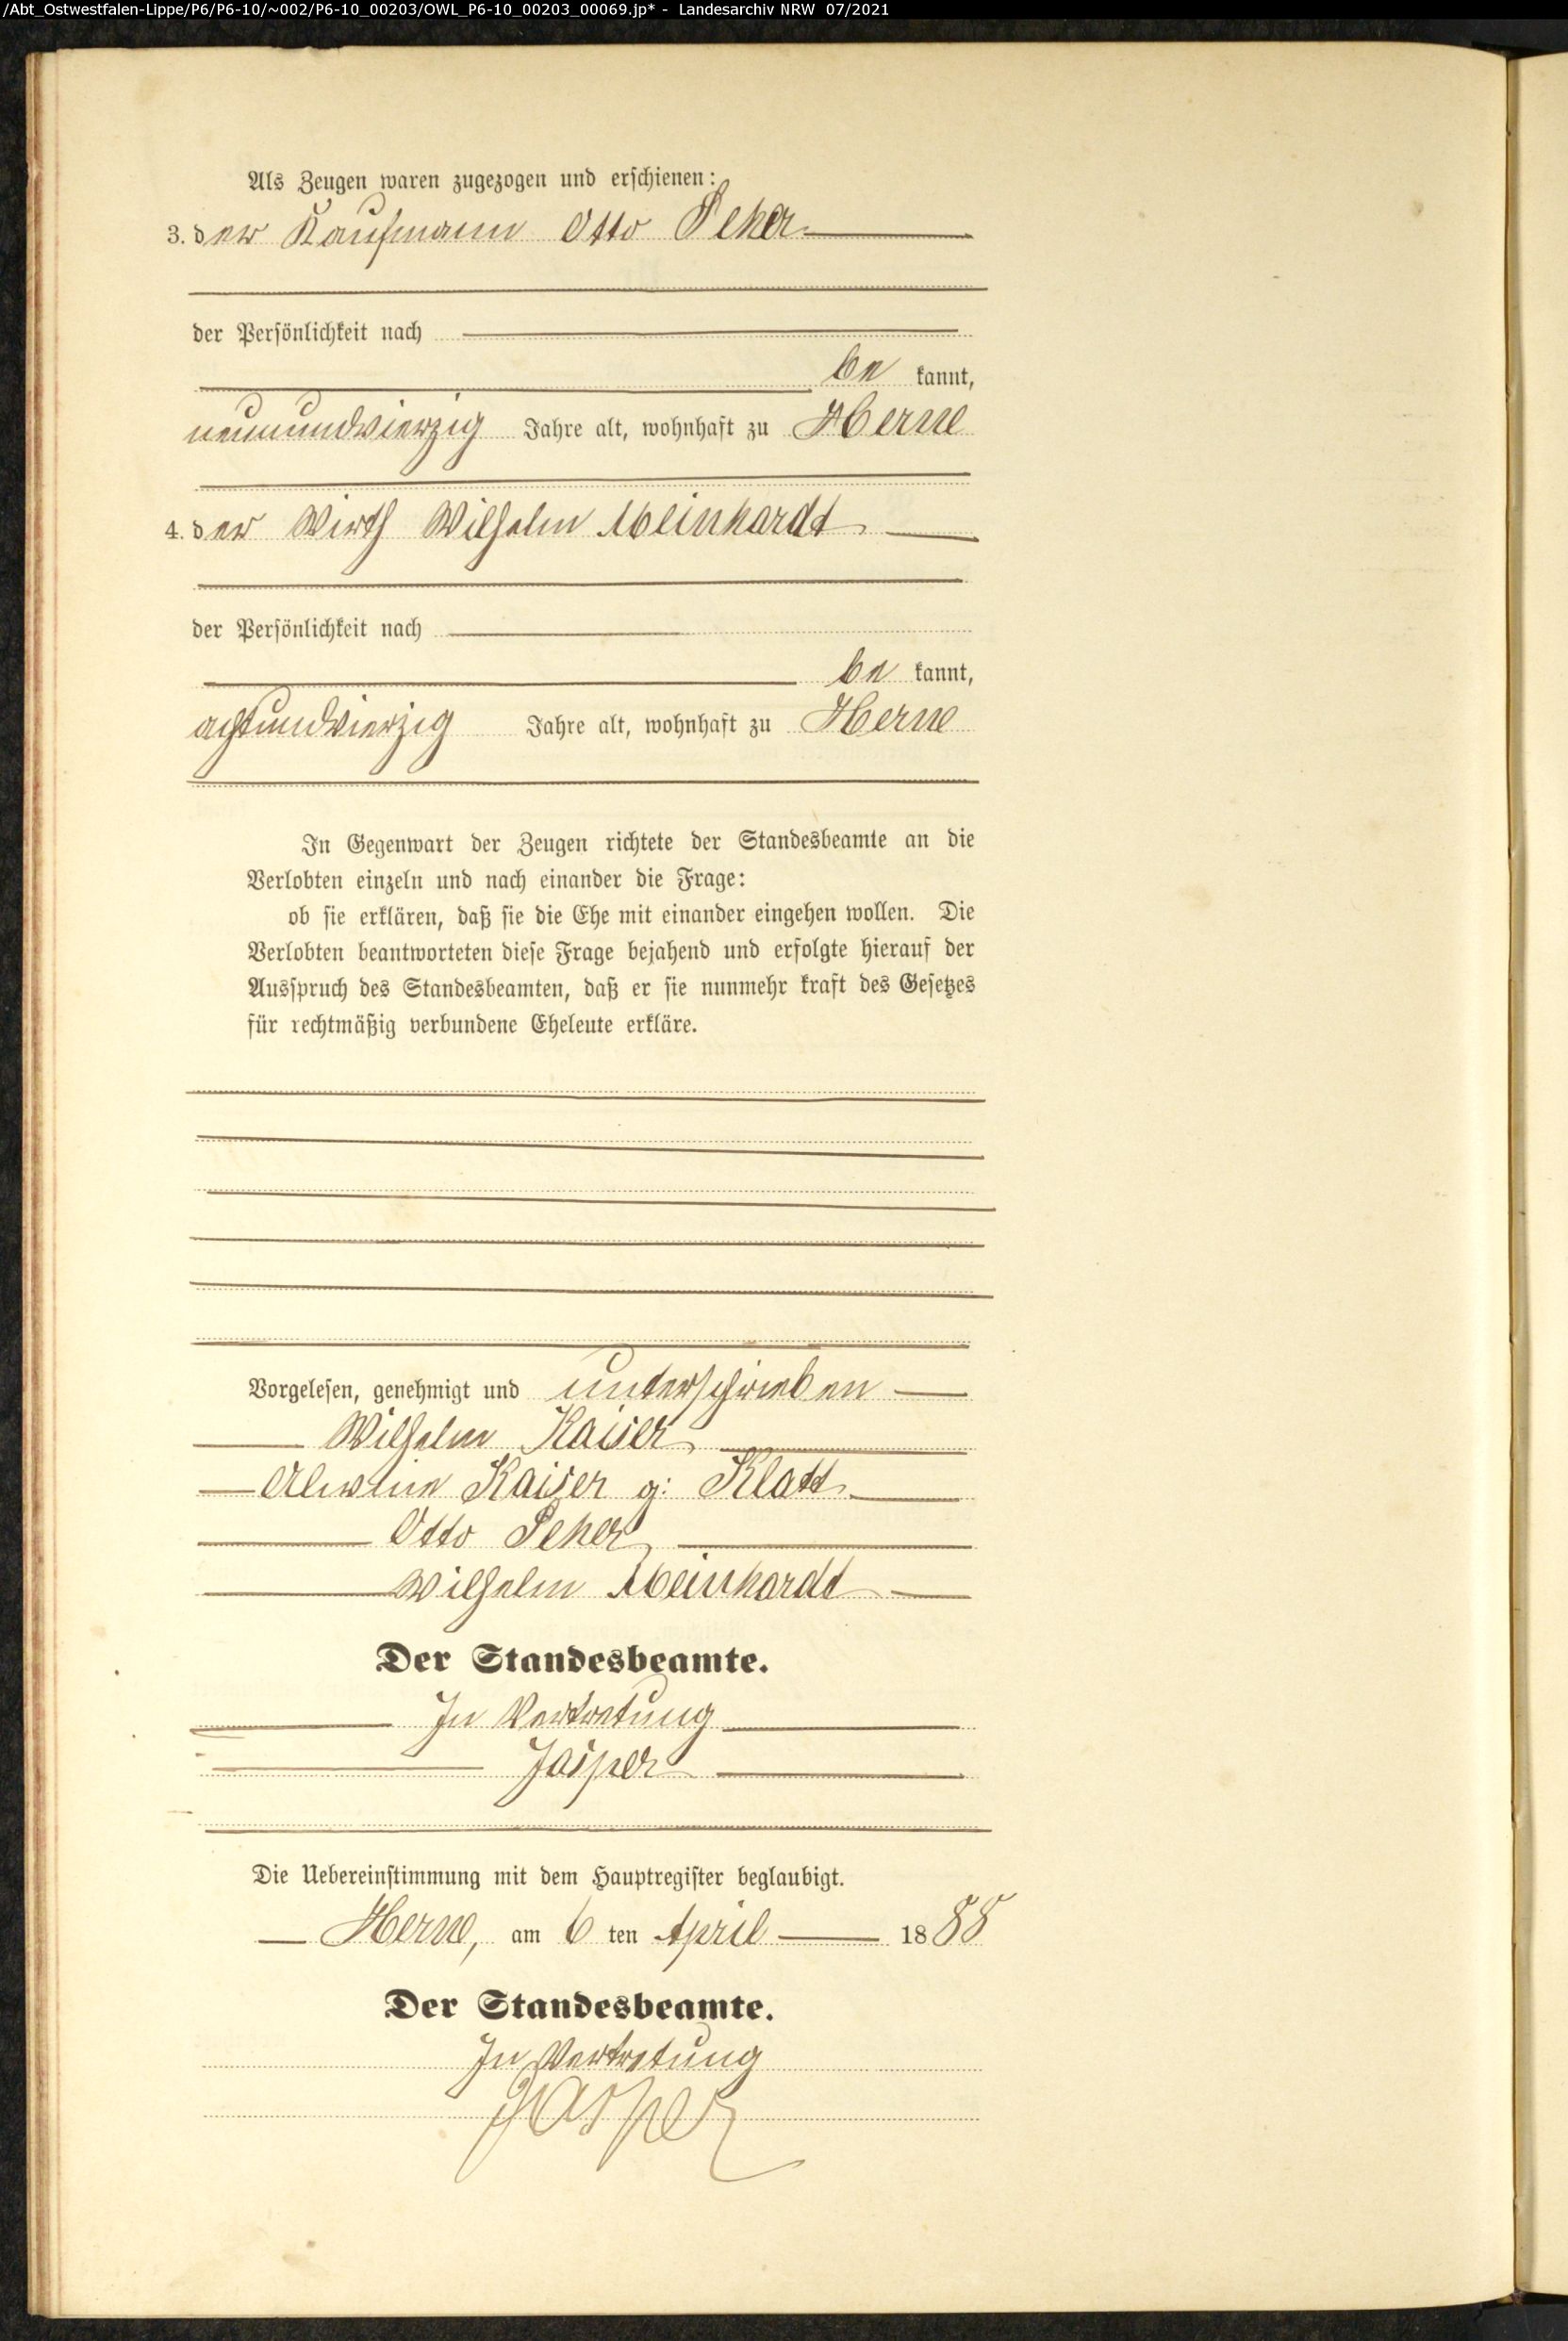 /Abt_Ostwestfalen-Lippe/P6/P6-10/~002/P6-10_00203/OWL_P6-10_00203_00069.jp* - Landesarchiv NRW 07/2021
Als Zeugen waren zugezogen und erschienen:
3. der Kaufmann Otto Peker
der Persönlichkeit nach
be kannt,
neunundvierzig Jahre alt, wohnhaft zu Herne
4. der Wirth Wilhelm Meinhardt
der Persönlichkeit nach
be kannt,
achtundvierzig Jahre alt, wohnhaft zu Herne
In Gegenwart der Zeugen richtete der Standesbeamte an die
Verlobten einzeln und nach einander die Frage:
ob sie erklären, daß sie die Ehe mit einander eingehen wollen. Die
Verlobten beantworteten diese Frage bejahend und erfolgte hierauf der
Ausspruch des Standesbeamten, daß er sie nunmehr kraft des Gesetzes
für rechtmäßig verbundene Eheleute erkläre.
Vorgelesen, genehmigt und unterschrieben
Wilhelm Kaiser
Alwine Kaiser g: Klatt
Otto Peker
Wilhelm Meinhardt
Der Standesbeamte.
In Vertretung
Jasper
Die Uebereinstimmung mit dem Hauptregister beglaubigt.
Herne, am 6 ten April 1888
Der Standesbeamte.
In Vertretung
Jasper